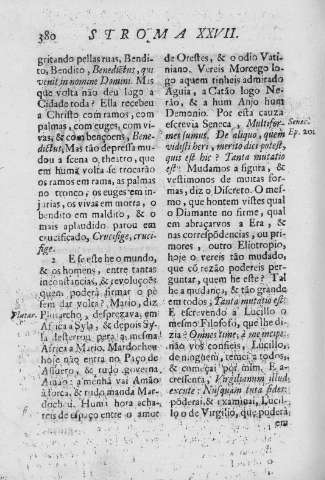 380 STROMA XXVII.
gritando pellas ruas, Bendi-
to, Bendito, Benedictus, qui
venit in nomine Domini. Mis
que volta não deu logo a
Cidade toda? Ella recebeu
a Christo com ramos, com
palmas, com euges, com vi-
vas, & com bençoens, Bene-
dictus, Mas tão depressa mu-
dou a scena o theatro, que
em huma volta se trocarão
os ramos em rama, as palmas
no tronco, os euges em in-
jurias, os vivas em morra, o
bendito em maldito, & o
mais aplaudido parou em
crucificado, Crucifige, cruci-
fige.
2 E se este he o mundo,
& os homens, entre tantas
inconstancias, & revoluçoẽs
quem poderà firmar o pè
sem dar volta? Mario, diz
Plutar. Plutarcho, desprezava, em
Africa a Syla, & depois Sy-
la desterrou pera a mesma
Africa a Mario. Mardocheu
hoje não entra no Paço de
Assuero, & tudo governa
Aman: a menhã vai Amão
à forca, & tudo manda Mar-
docheu. Huma hora acha-
reis de espaço entre o amor
de Orestes, & o odio Vati-
niano. Vereis Morcego lo-
go aquem tinheis admirado
Aguia, a Catão logo Ne-
rão, & a hum Anjo hum
Demonio. Por esta cauza
escrevia Seneca, Multifor-
mes sumus. De aliquo, quem
videsti heri, merito dici potest,
quis est hic? Tanta mutatio
est: Mudamos a figura, &
vestimonos de muitas for-
mas, diz o Discreto. O mes-
mo, que hontem vistes qual
o Diamante no firme, qual
em abraçarvos a Era, &
nas correspõdencias, ou pri-
mores, outro Eliotropio,
hoje o vereis tão mudado,
que cõ rezão podereis per-
guntar, quem he este? Tal
he a mudança, & tão grande
em todos, Tanta mutatio est:
E escrevendo a Lucillo o
mesmo Filosofo, que lhe di-
zia: Omnes time, à me incipe:
não vos confieis, Lucillo,
de ninguem, temei a todos,
& começai por mim. E a-
cresenta, Virgilianum illud
excute: Nusquam tuta fides:
põderai, & examinai, Lucil-
lo o de Virgilio, que poderá
era
Senec.
Ep. 201